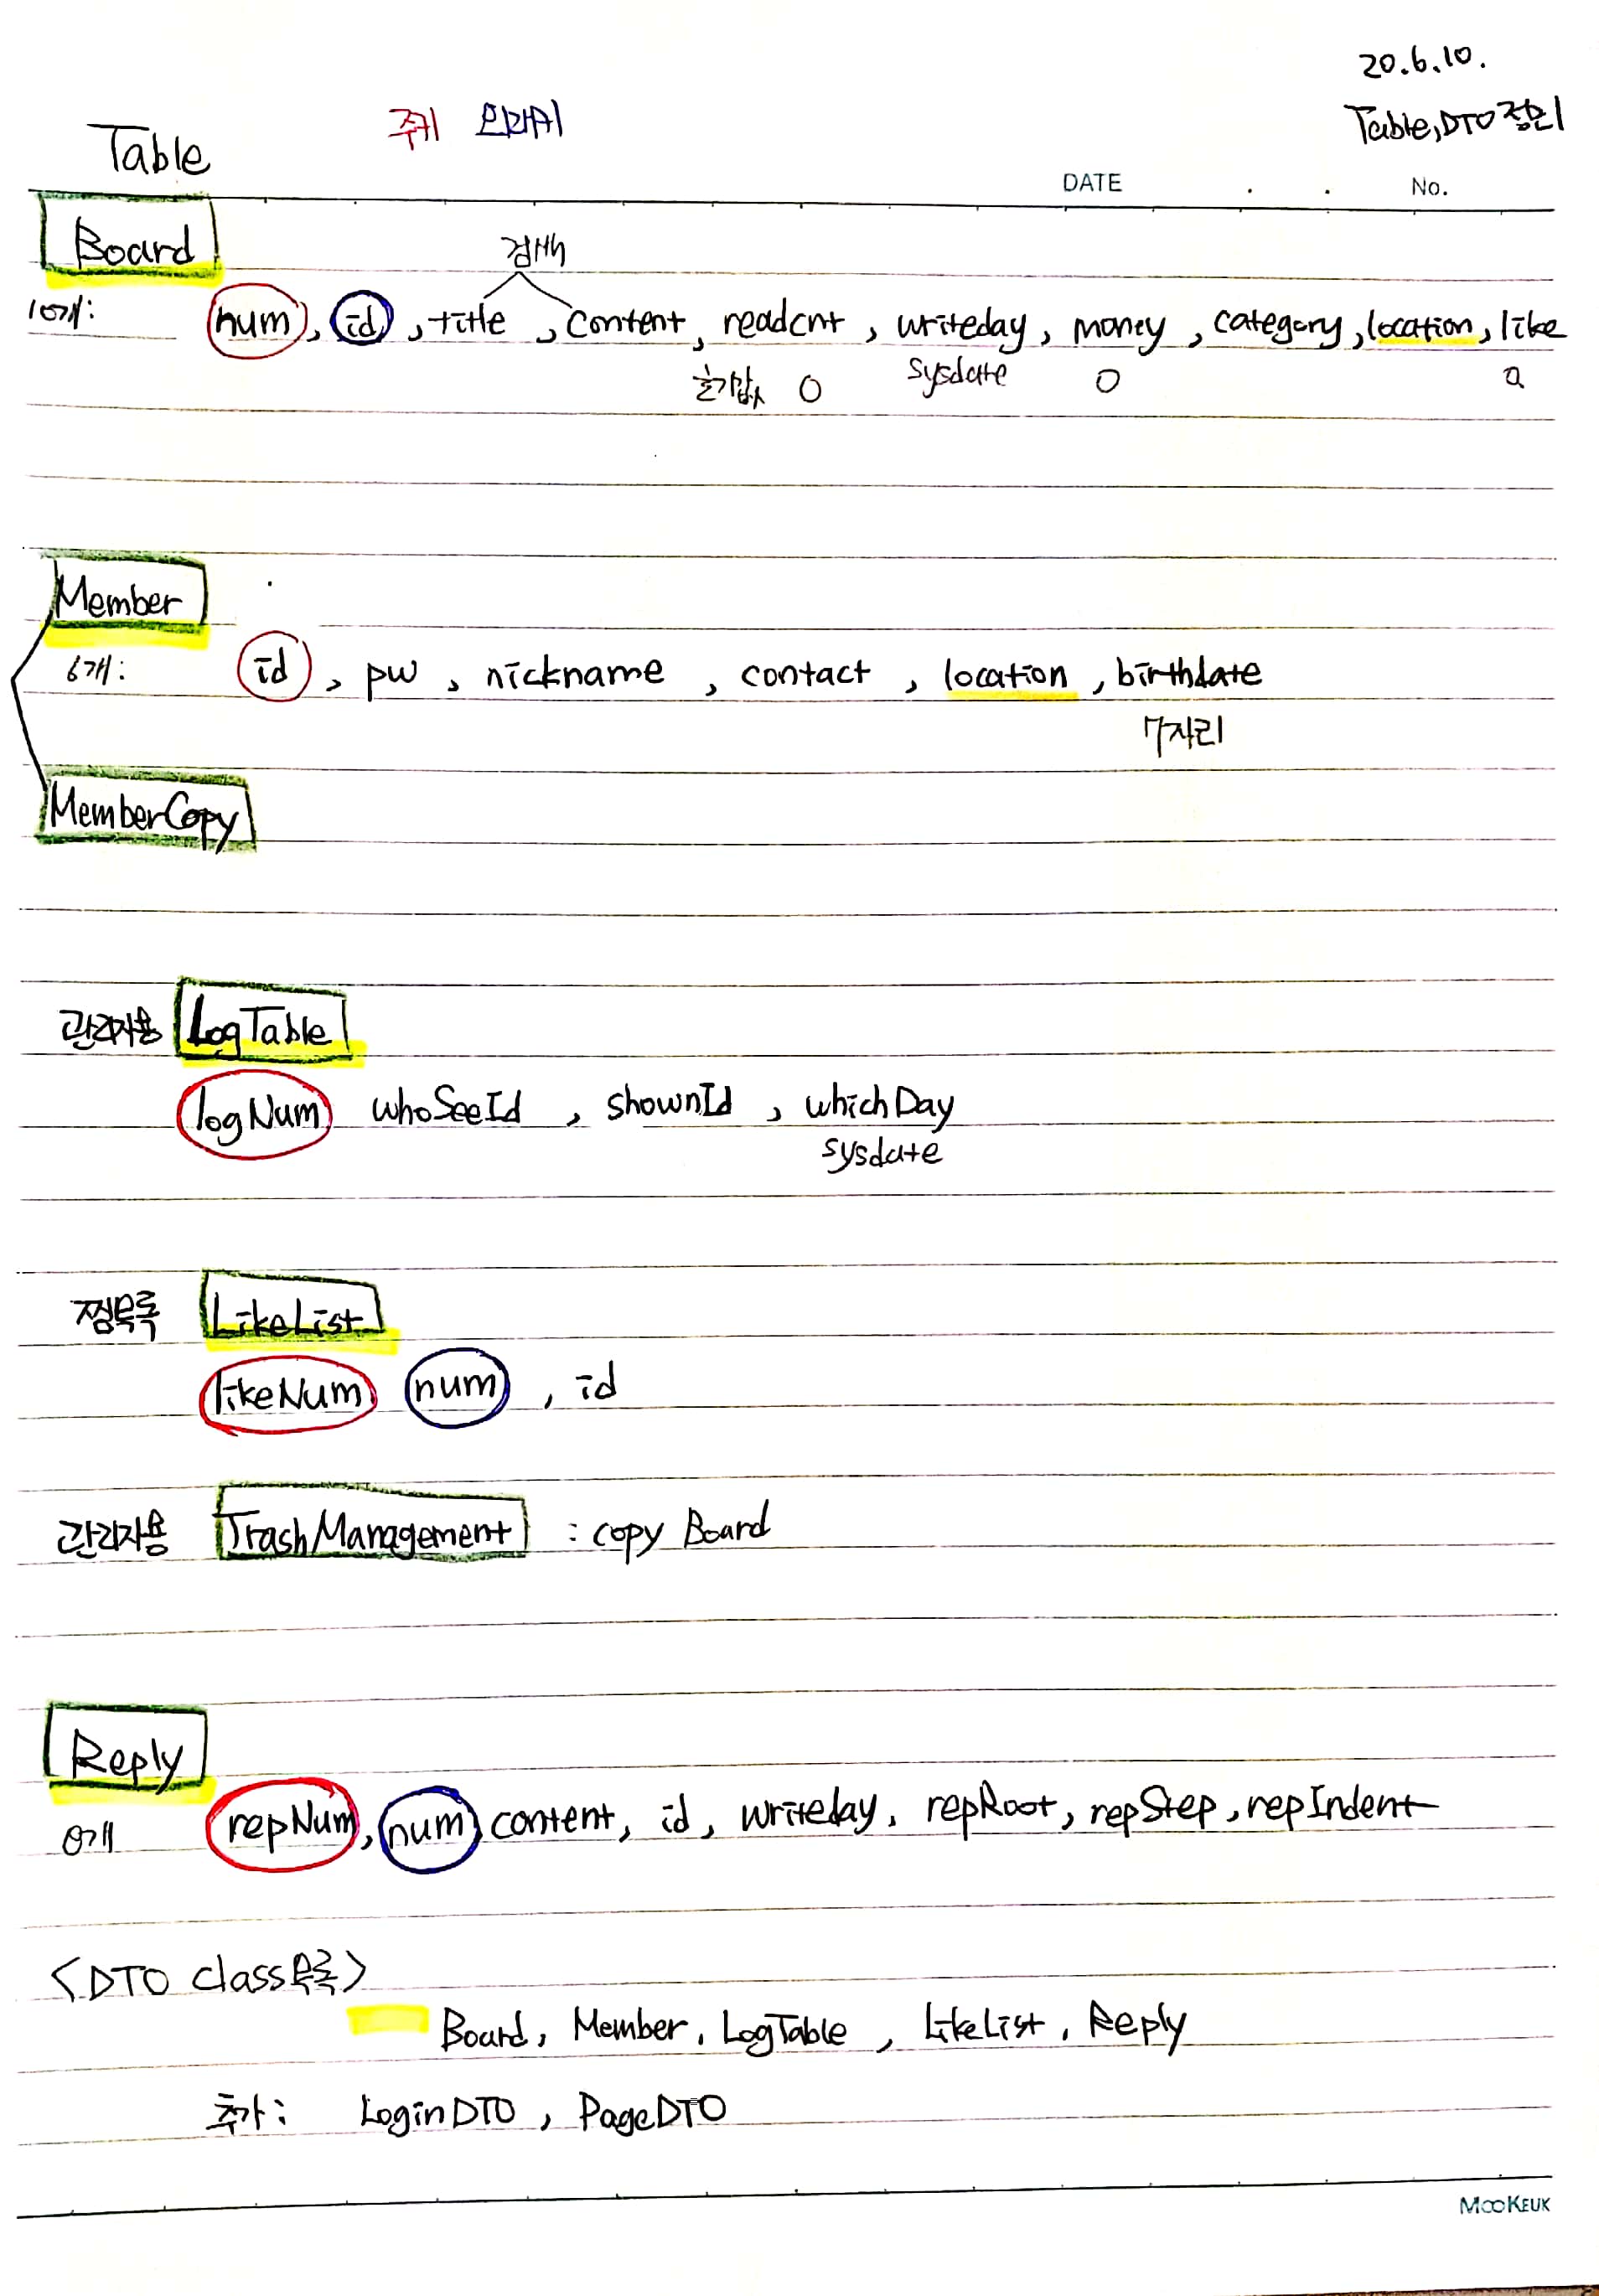 20.6.10.
Table, DTO 정리
Table 주키 외래키
DATE . . No.
Board
검색
10개: num, id, title, content, readcnt, writeday, money, category, location, like
초기값 0 sysdate 0 0
Member
6개: id, pw, nickname, contact, location, birthdate
7자리
MemberCopy
관리자용 LogTable
logNum whoSeeId, shownId, whichDay
sysdate
찜목록 LikeList
likeNum num, id
관리자용 TrashManagement : copy Board
Reply
8개 repNum, num, content, id, writeday, repRoot, repStep, repIndent
<DTO class목록>
Board, Member, LogTable, LikeList, Reply
추가: LoginDTO, PageDTO
MooKEUK